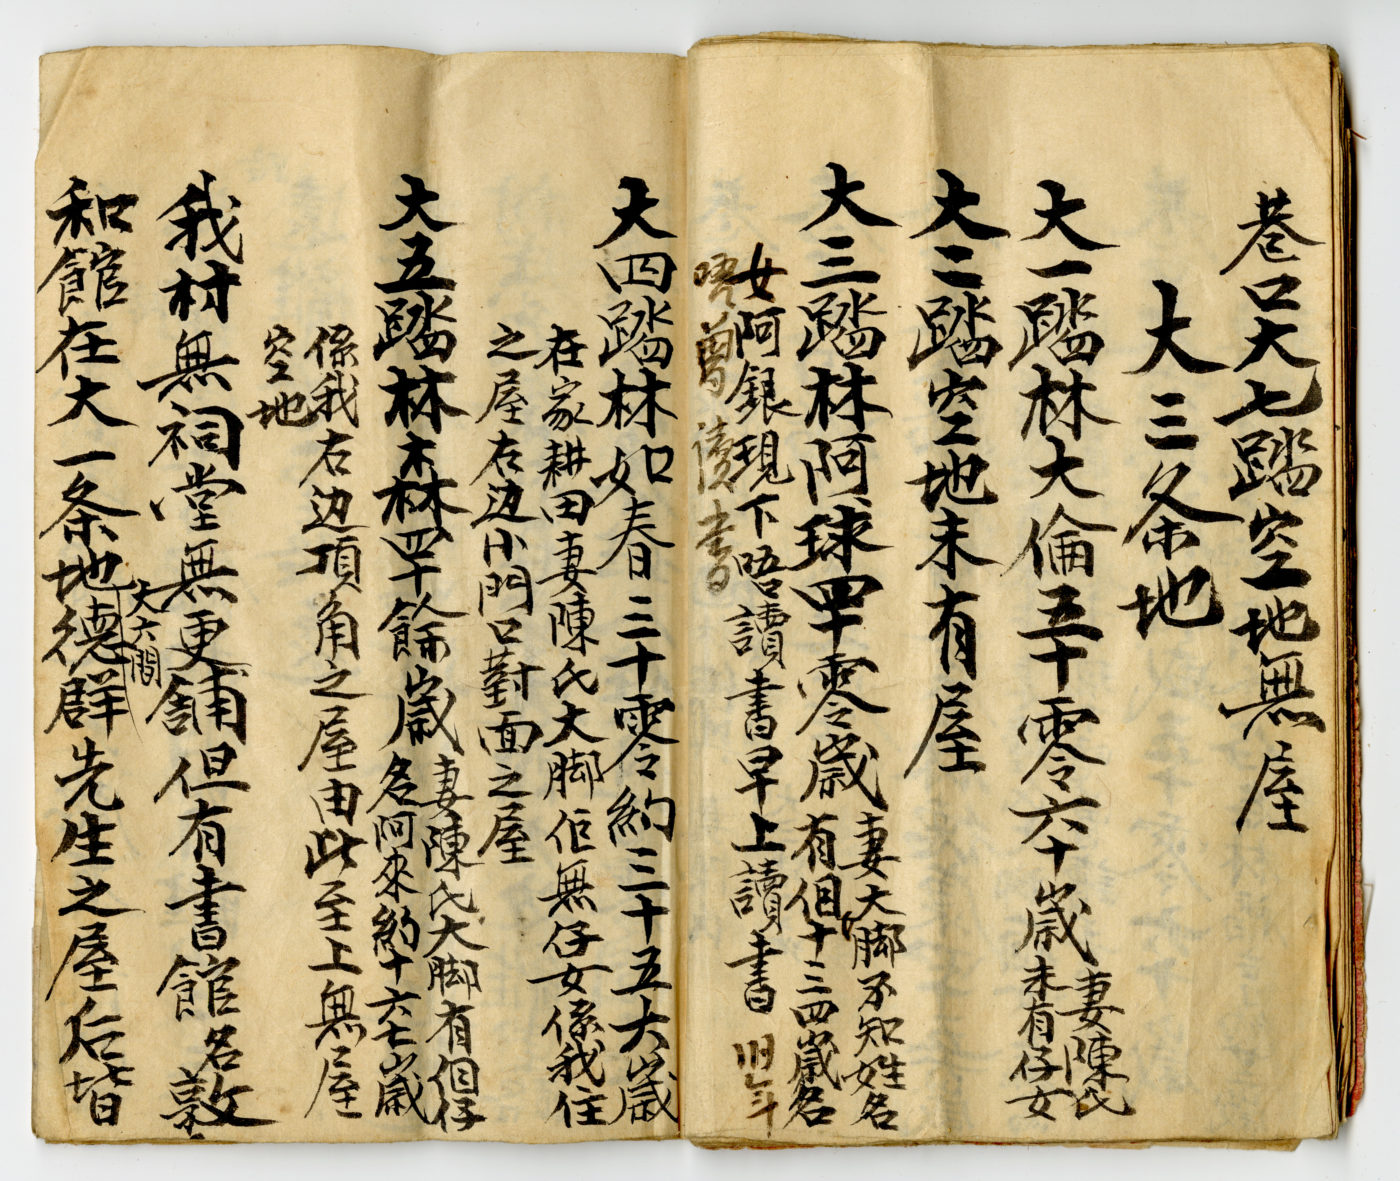 巷口大七踏空地無屋
大三条地
大一踏林大倫五十零六十歲
妻陳氏
未有仔女
大二踏空地未有屋
大三踏林阿球四十零歲
妻大脚不知姓名
有個女十三四歲名
女阿銀現下唔讀書早上讀書
唔曾讀書
大四踏林如春三十零約三十五六歲
在家耕田妻陳氏大脚佢無仔女係我住
之屋右边小門口對面之屋
大五踏林木林四十餘歲
妻陳氏大脚有個仔
名阿來約十六七歲
係我右边頂角之屋由此至上無屋
空地
我村無祠堂無更舖但有書館名敦
和館在大一条地德群先生之屋后皆
大六間